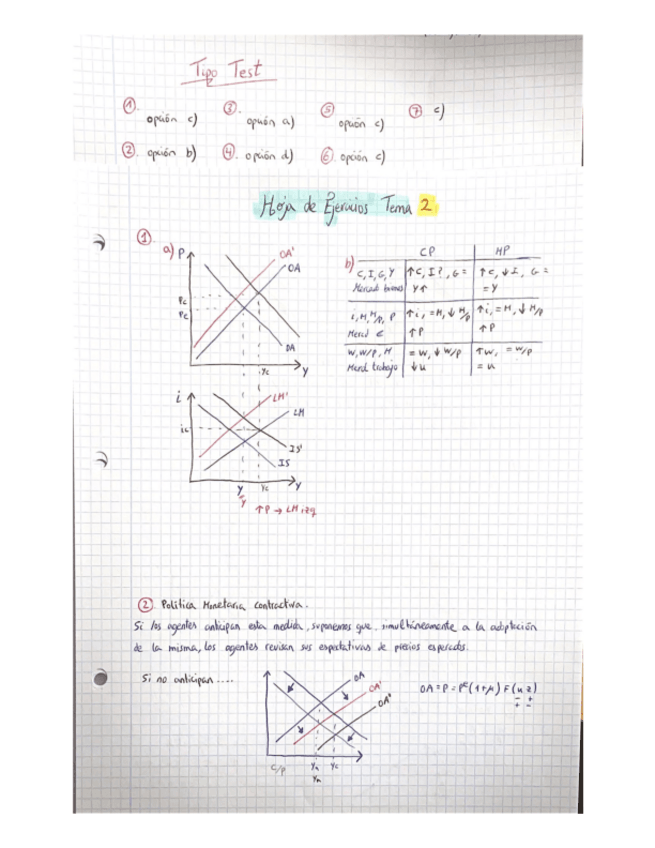 Tipo Test
①. opción c)
③. opción a)
⑤ opción c)
⑦ c)
②. opción b)
④. opción d)
⑥. opción c)
Hoja de Ejercicios Tema 2
①
a) P
OA'
OA
Pc
Pc
DA
Yc
Y
i
LM'
LM
ic
IS'
IS
Y
Yc
Y
Y
↑P → LM izq
b)
CP
MP
C, I, G, Y
Mercad bienes
↑C, I?, G =
Y↑
↑C, ↓I, G =
= Y
i, M, M/p, P
Mercd €
↑i, =M, ↓M/p
↑P
↑i, =M, ↓M/p
↑P
W, W/P, M
Mercd trabajo
= W, ↓W/P
↓u
↑W, = W/P
= u
② Política Monetaria contractiva.
Si los agentes anticipan esta medida, suponemos que, simultáneamente a la adoptación
de la misma, los agentes revisan sus expectativas de precios esperados.
Si no anticipan ....
OA
OA'
OA"
C/p
Yn
Yc
Yn
OA = P = Pᵉ(1+μ) F(u z)